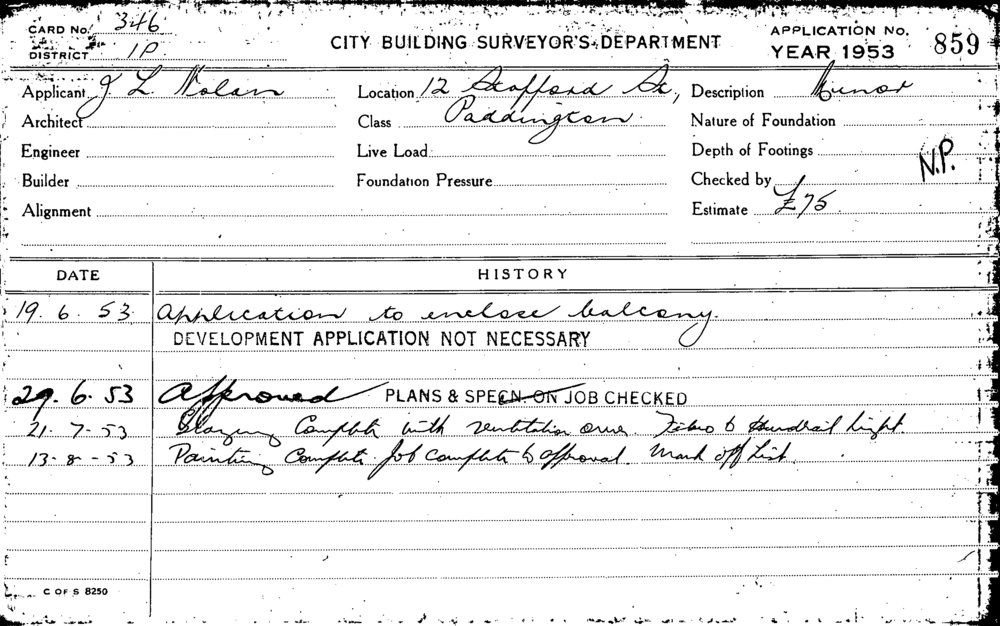 CARD No. 346
DISTRICT 1P
CITY BUILDING SURVEYOR'S DEPARTMENT
APPLICATION No. 859
YEAR 1953
Applicant J L Nolan
Location 12 Stafford St,
Description Minor
Architect
Class Paddington
Nature of Foundation
Engineer
Live Load
Depth of Footings
N.P.
Builder
Foundation Pressure
Checked by
Alignment
Estimate £75
DATE HISTORY
19. 6. 53 Application to enclose balcony.
DEVELOPMENT APPLICATION NOT NECESSARY
29. 6. 53 Approved PLANS & SPECN ON JOB CHECKED
21. 7. 53 Glazing Complete with ventilation over. Fibro to Handrail hight.
13. 8. 53 Painting Complete Job complete to approval. Mark off List.
C OF S 8250